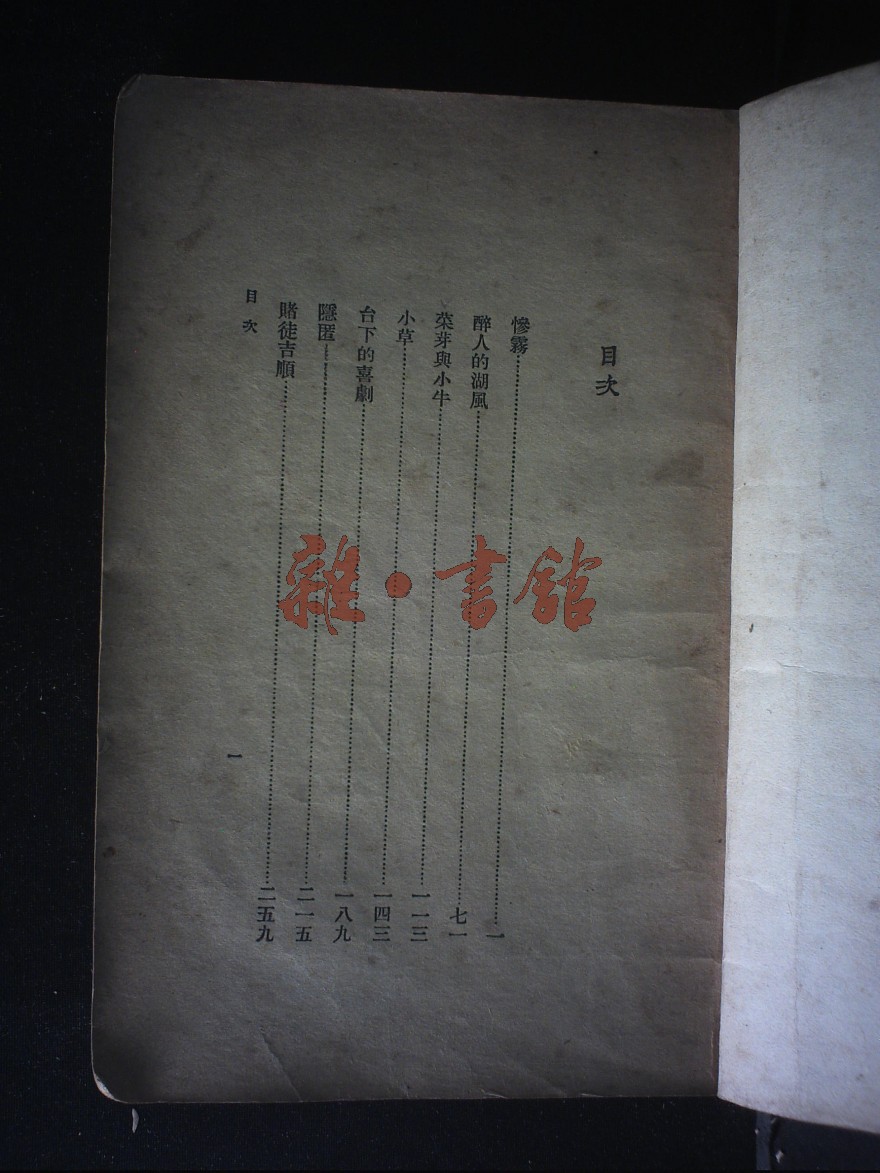 目次
慘霧……一
醉人的湖風……七一
菜芽與小牛……一一三
小草……一四三
台下的喜劇……一八九
隱匿……二一五
賭徒吉順……二五九
目次
一
雜·書館